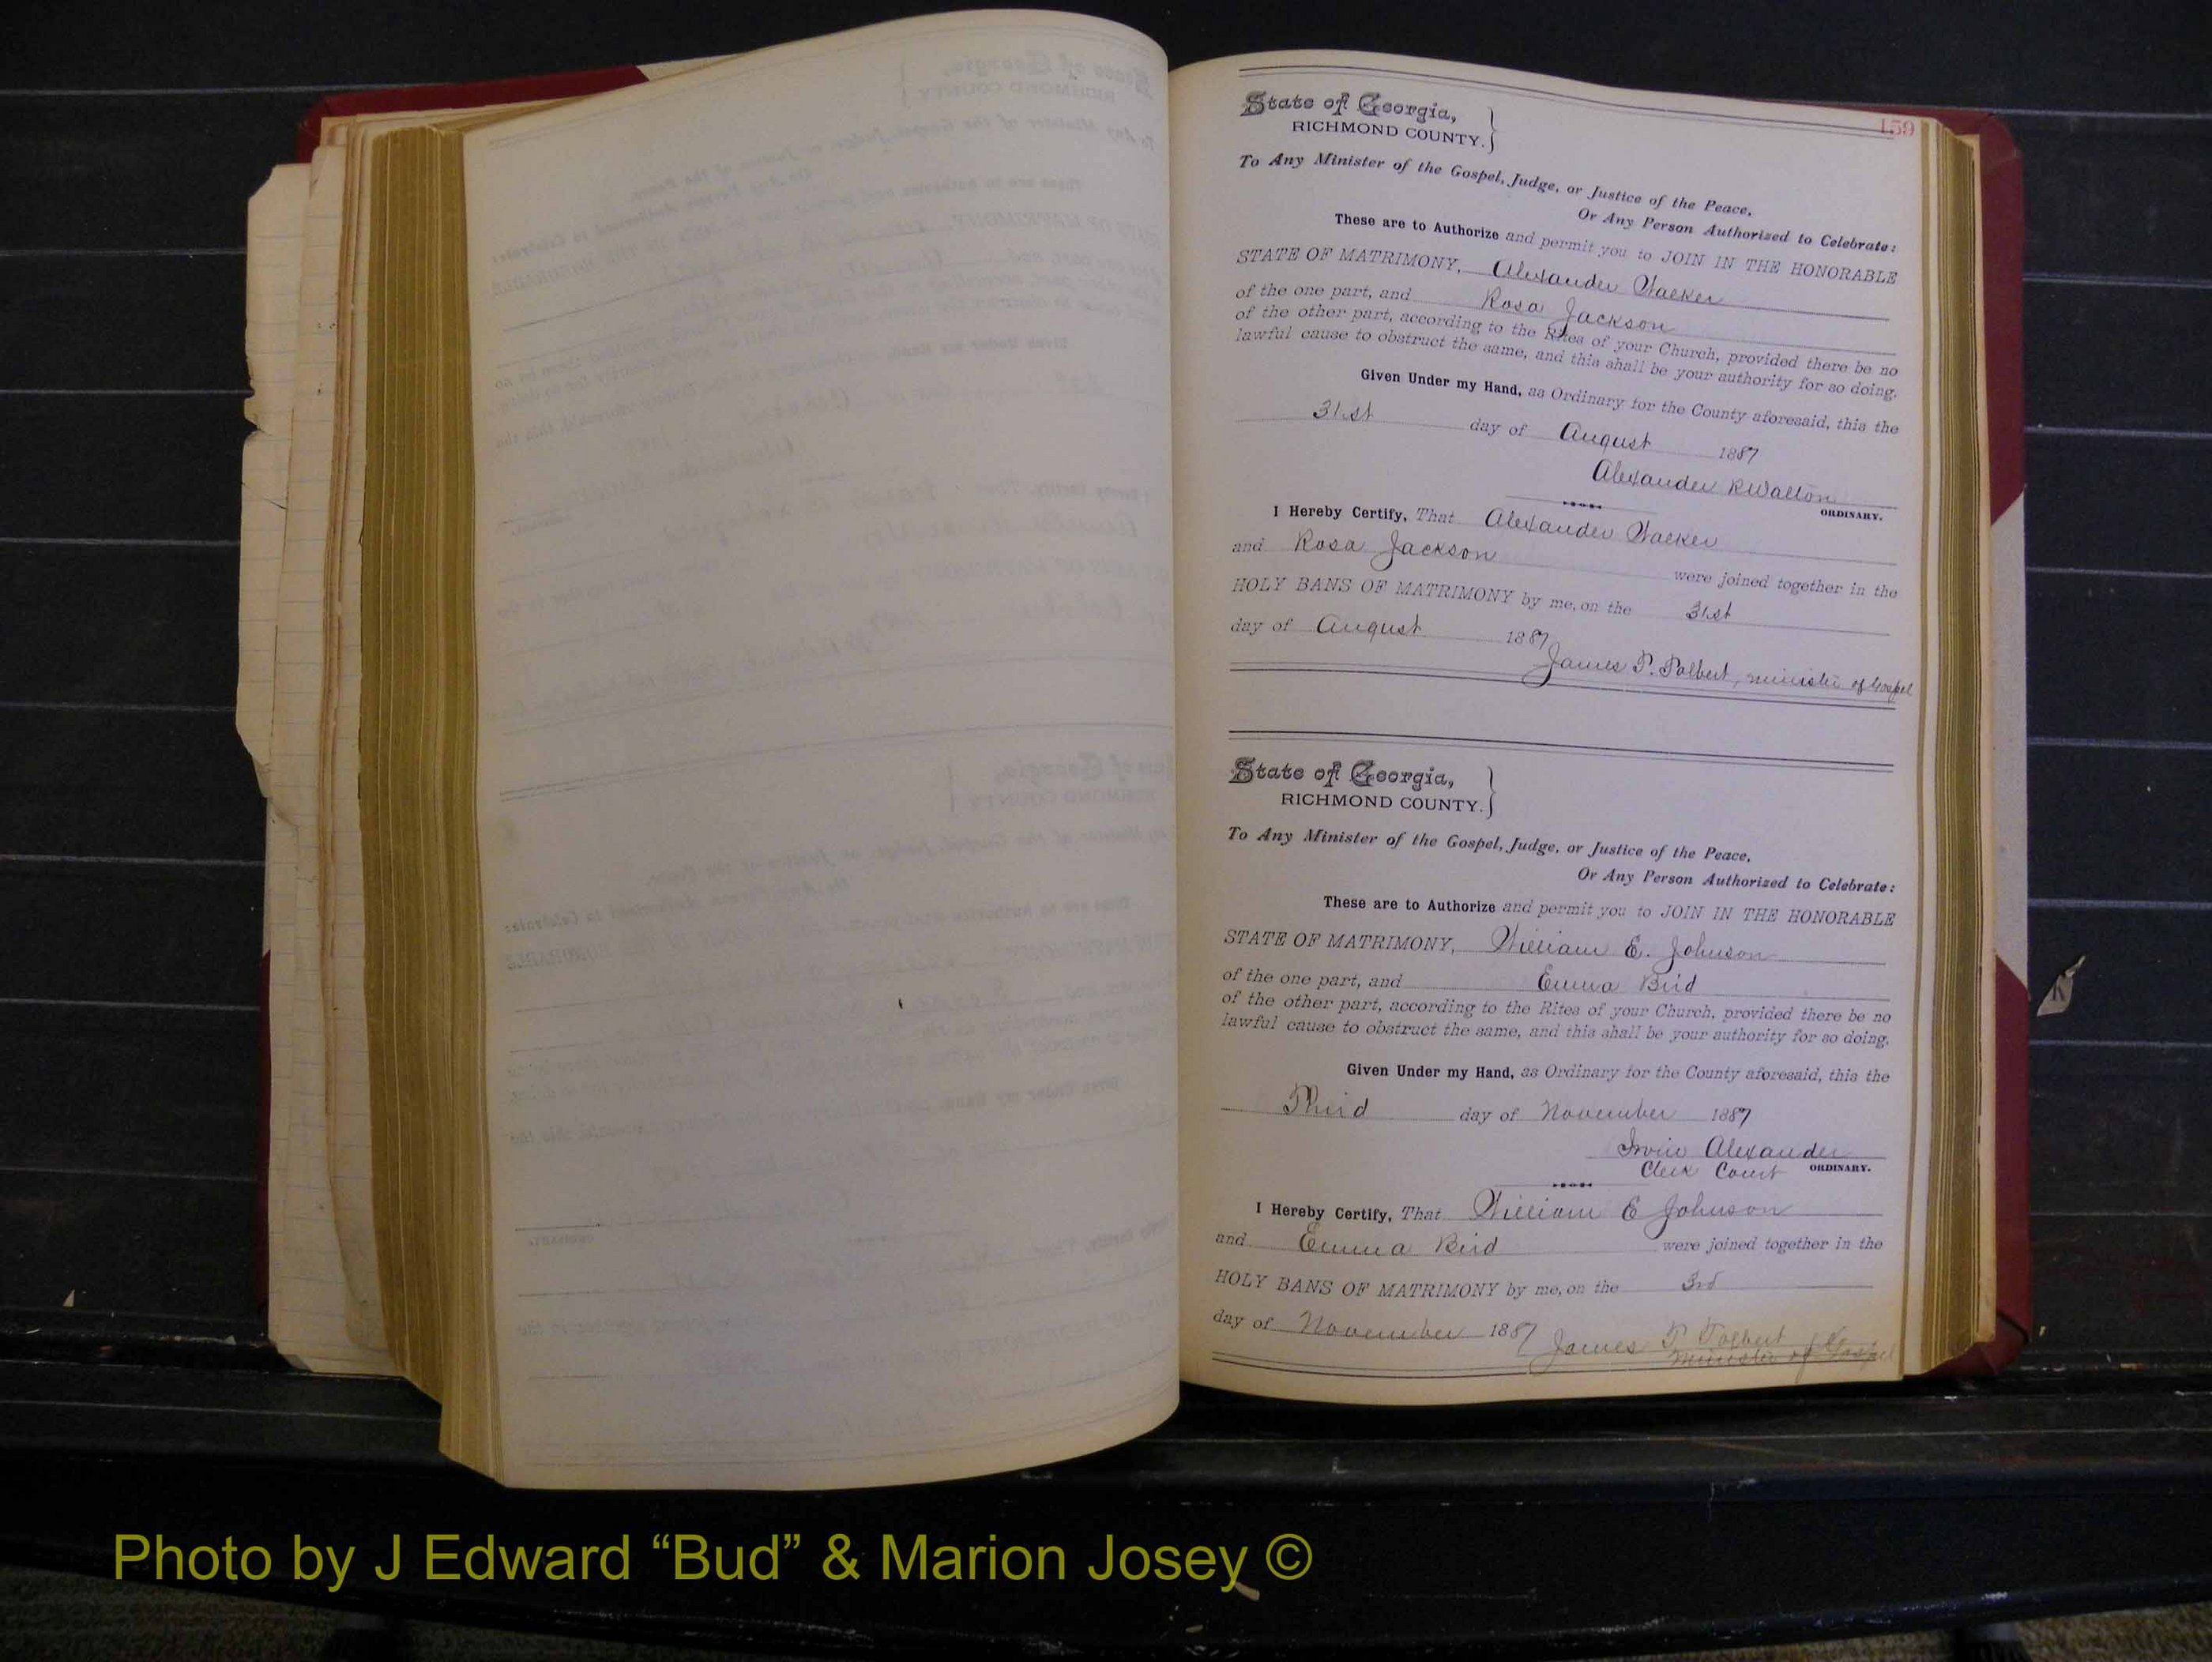 159
State of Georgia,
RICHMOND COUNTY.
To Any Minister of the Gospel, Judge, or Justice of the Peace,
Or Any Person Authorized to Celebrate:
These are to Authorize and permit you to JOIN IN THE HONORABLE
STATE OF MATRIMONY, Alexander Walker
of the one part, and Rosa Jackson
of the other part, according to the Rites of your Church, provided there be no
lawful cause to obstruct the same, and this shall be your authority for so doing.
Given Under my Hand, as Ordinary for the County aforesaid, this the
31st day of August 1887
Alexander R Walton
ORDINARY.
I Hereby Certify, That Alexander Walker
and Rosa Jackson were joined together in the
HOLY BANS OF MATRIMONY by me, on the 31st
day of August 1887
James T. Tolbert, minister of Gospel
State of Georgia,
RICHMOND COUNTY.
To Any Minister of the Gospel, Judge, or Justice of the Peace,
Or Any Person Authorized to Celebrate:
These are to Authorize and permit you to JOIN IN THE HONORABLE
STATE OF MATRIMONY, William E. Johnson
of the one part, and Emma Bird
of the other part, according to the Rites of your Church, provided there be no
lawful cause to obstruct the same, and this shall be your authority for so doing.
Given Under my Hand, as Ordinary for the County aforesaid, this the
Third day of November 1887
Irvin Alexander
Clerk Court ORDINARY.
I Hereby Certify, That William E Johnson
and Emma Bird were joined together in the
HOLY BANS OF MATRIMONY by me, on the 3rd
day of November 1887 James T. Tolbert
Minister of Gospel
Photo by J Edward “Bud” & Marion Josey ©